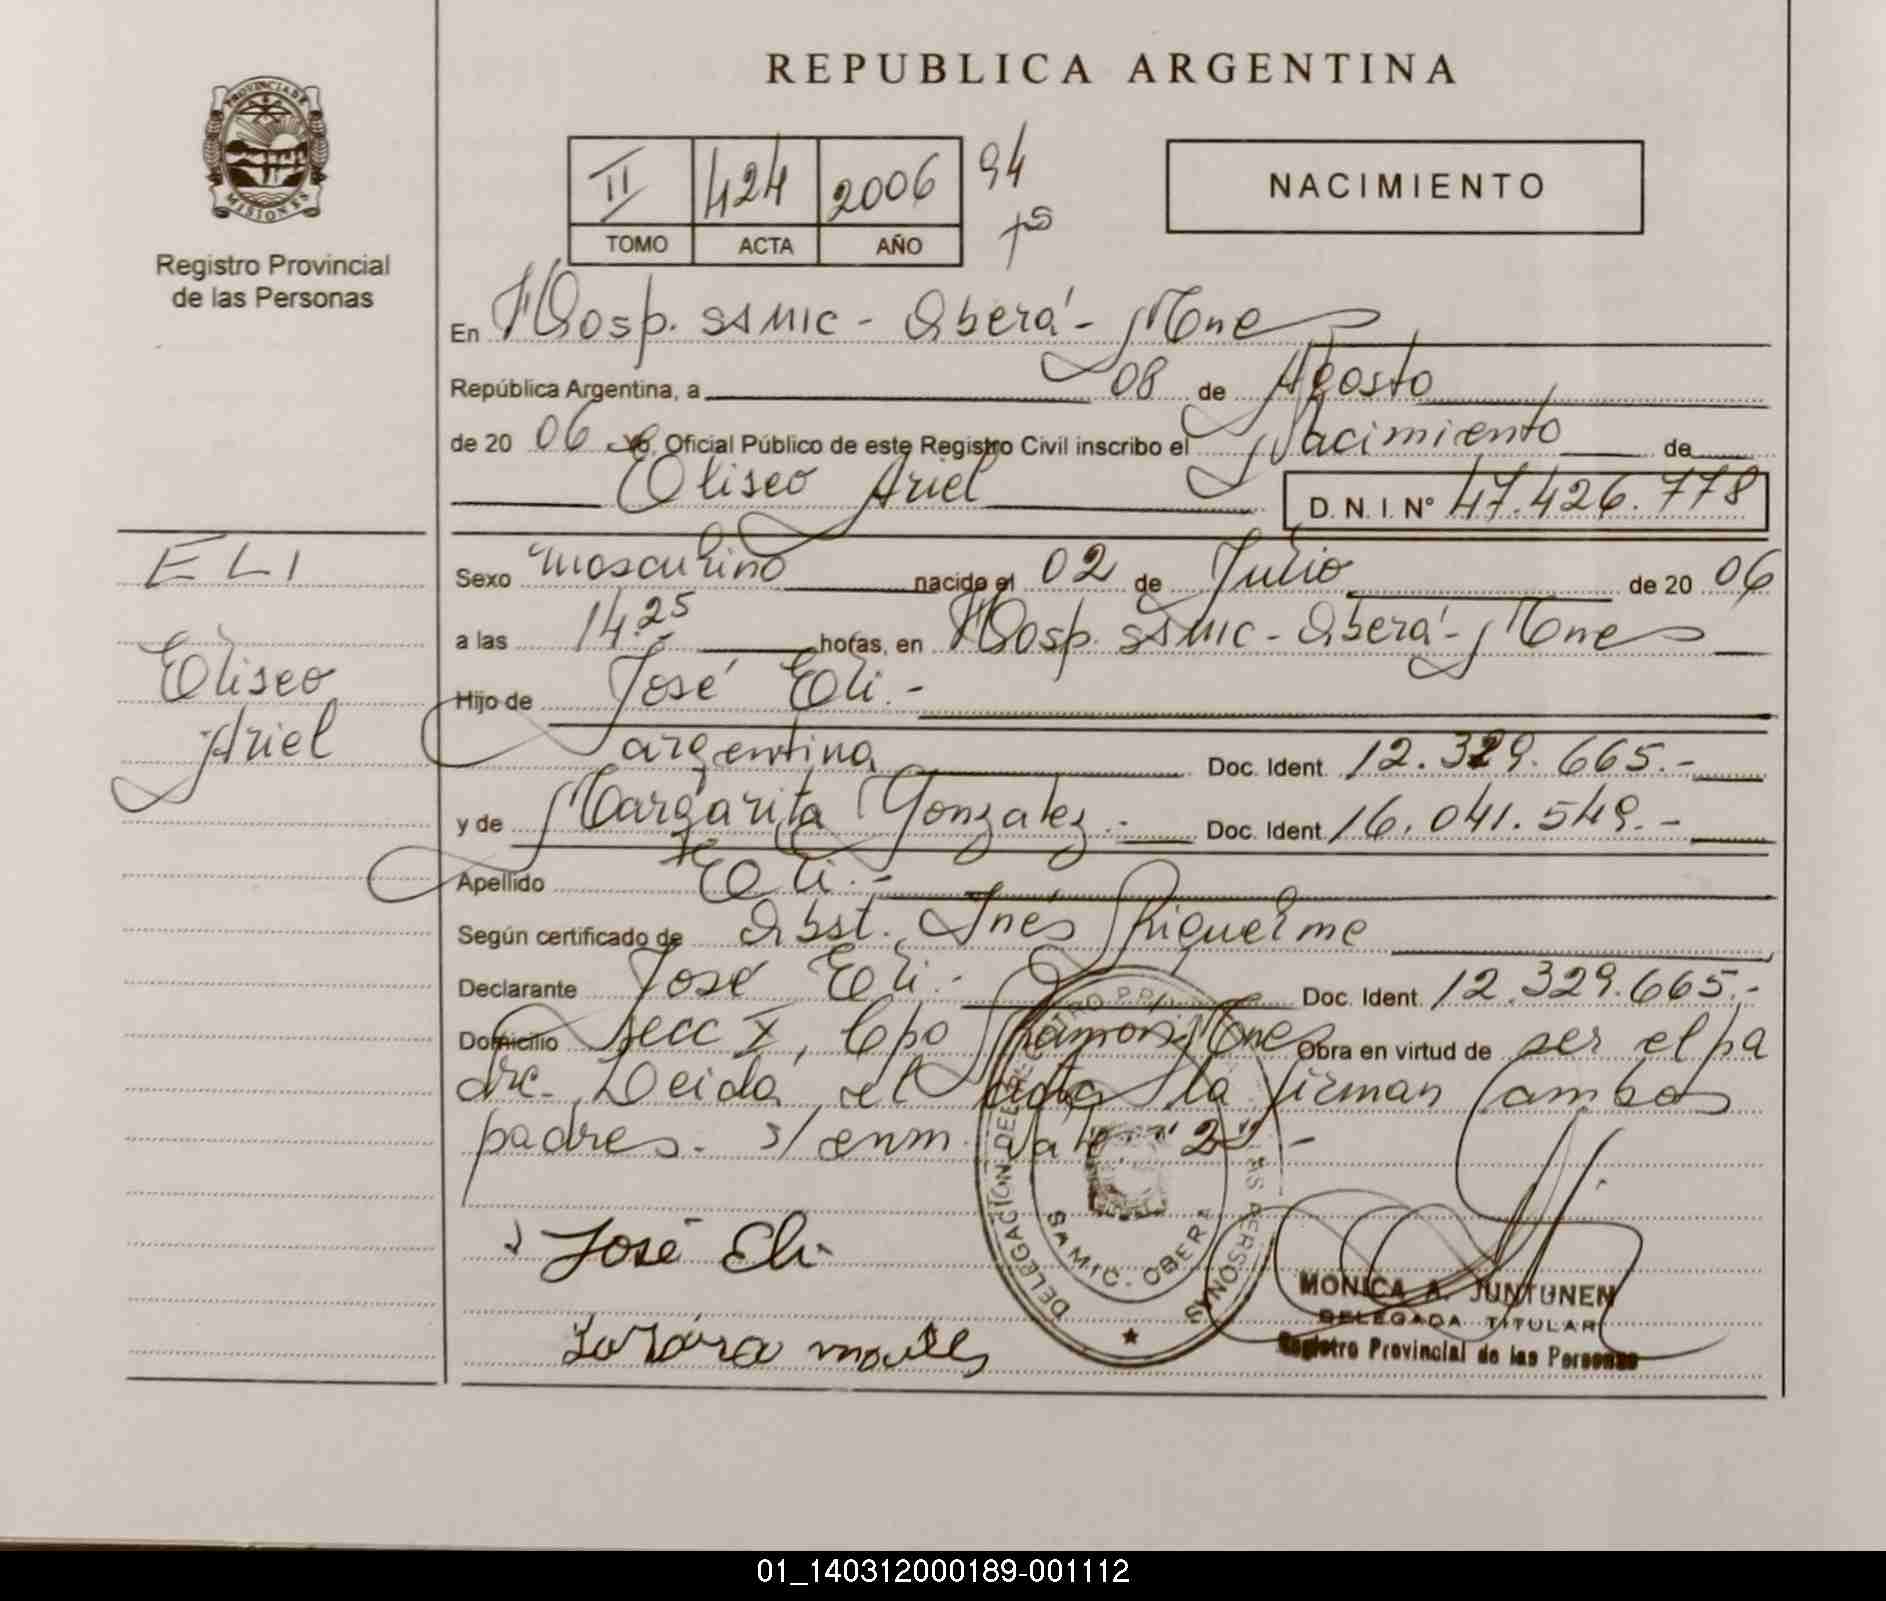 REPUBLICA ARGENTINA
PROVINCIA DE MISIONES
Registro Provincial
de las Personas
II 424 2006 94
TOMO ACTA AÑO
NACIMIENTO
En Hosp. SAMIC - Oberá - Mnes
República Argentina, a 08 de Agosto
de 20 06 Yo, Oficial Público de este Registro Civil inscribo el Nacimiento de
Eliseo Ariel D. N. I. Nº 47.426.778
ELI
Eliseo
Ariel
Sexo masculino nacido el 02 de Julio de 20 06
a las 14.25 horas, en Hosp. SAMIC - Oberá - Mnes
Hijo de José Eli.-
argentina Doc. Ident. 12.329.665.-
y de Margarita Gonzalez.- Doc. Ident. 16.041.549.-
Apellido Eli.-
Según certificado de Obst. Inés Riquelme
Declarante José Eli.- Doc. Ident. 12.329.665.-
Domicilio Secc X, Cpo Ramon Mnes Obra en virtud de ser el pa
dre. Leida el acta la firman ambos
padres. s/enm. vale "2".-
José Eli
DELEGACION DEL REGISTRO PROVINCIAL DE LAS PERSONAS
SAMIC. OBERA
MONICA A. JUNTUNEN
DELEGADA TITULAR
Registro Provincial de las Personas
01_140312000189-001112